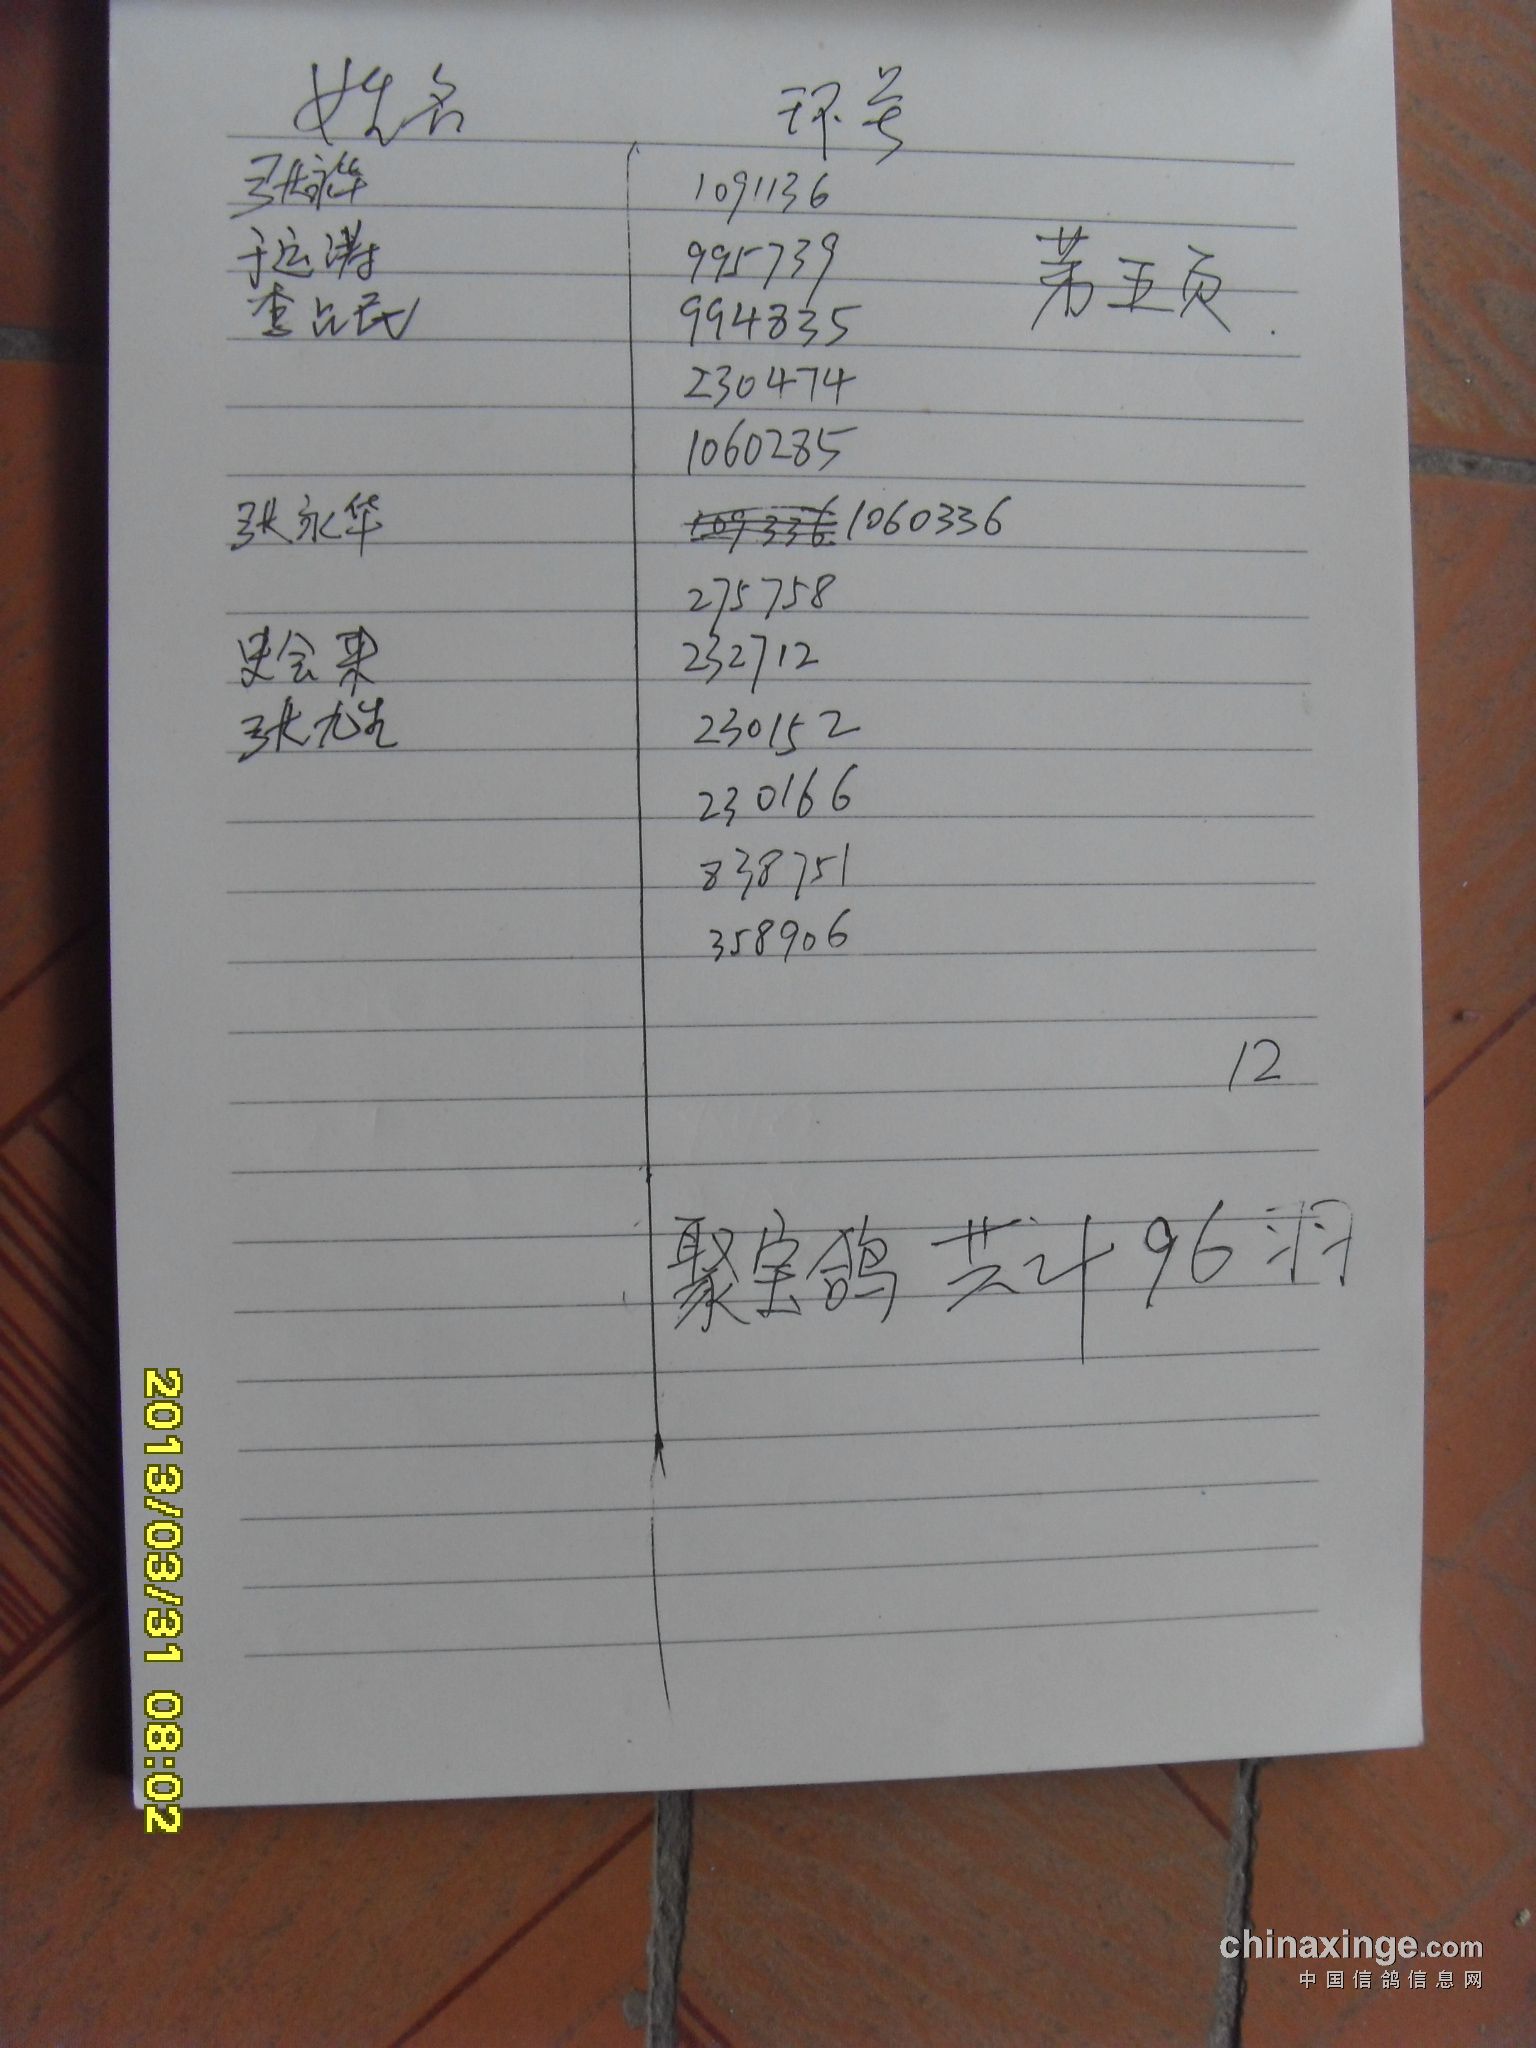 姓名 环号
张永华 1091136
于运涛 995739 第五页
李占民 994835
230474
1060285
张永华 109336 1060336
275758
史会来 232712
张九生 230152
230166
838751
358906
12
聚宝鸽 共计96羽
2013/03/31 08:02
chinaxinge.com
中国信鸽信息网